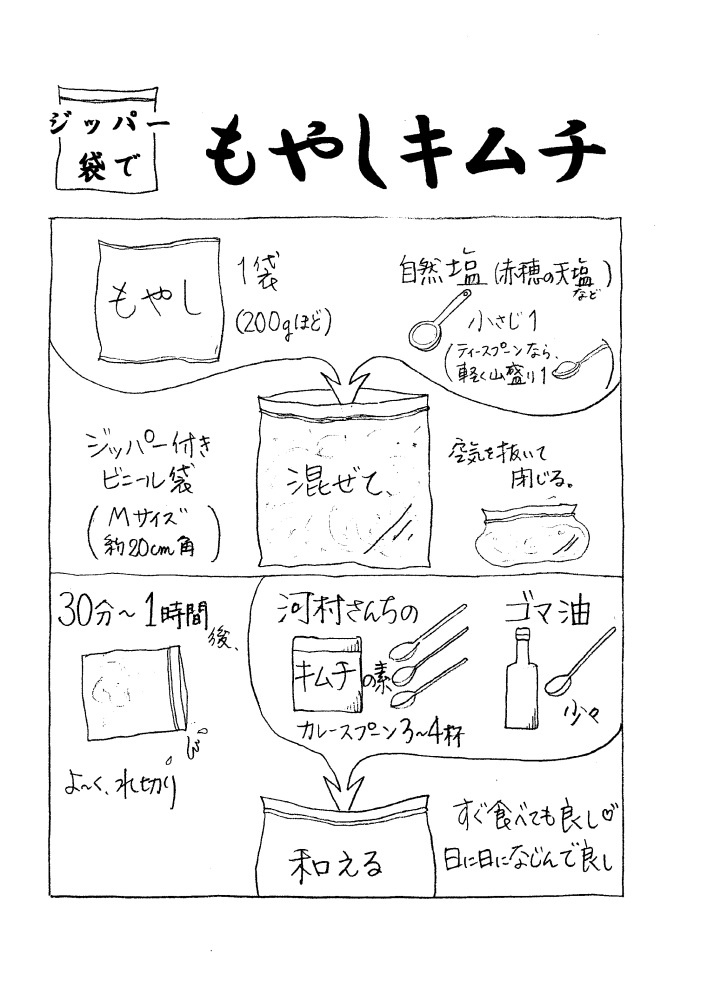 ジッパー
袋で
もやしキムチ
もやし
1袋
(200gほど)
自然塩(赤穂の天塩など)
小さじ1
(ティースプーンなら、
軽く山盛り1)
ジッパー付き
ビニール袋
(Mサイズ
約20cm角)
混ぜて、
空気を抜いて
閉じる。
30分〜1時間
後、
よ〜く、水切り
河村さんちの
キムチの素
カレースプーン3〜4杯
ゴマ油
少々
和える
すぐ食べても良し♡
日に日になじんで良し